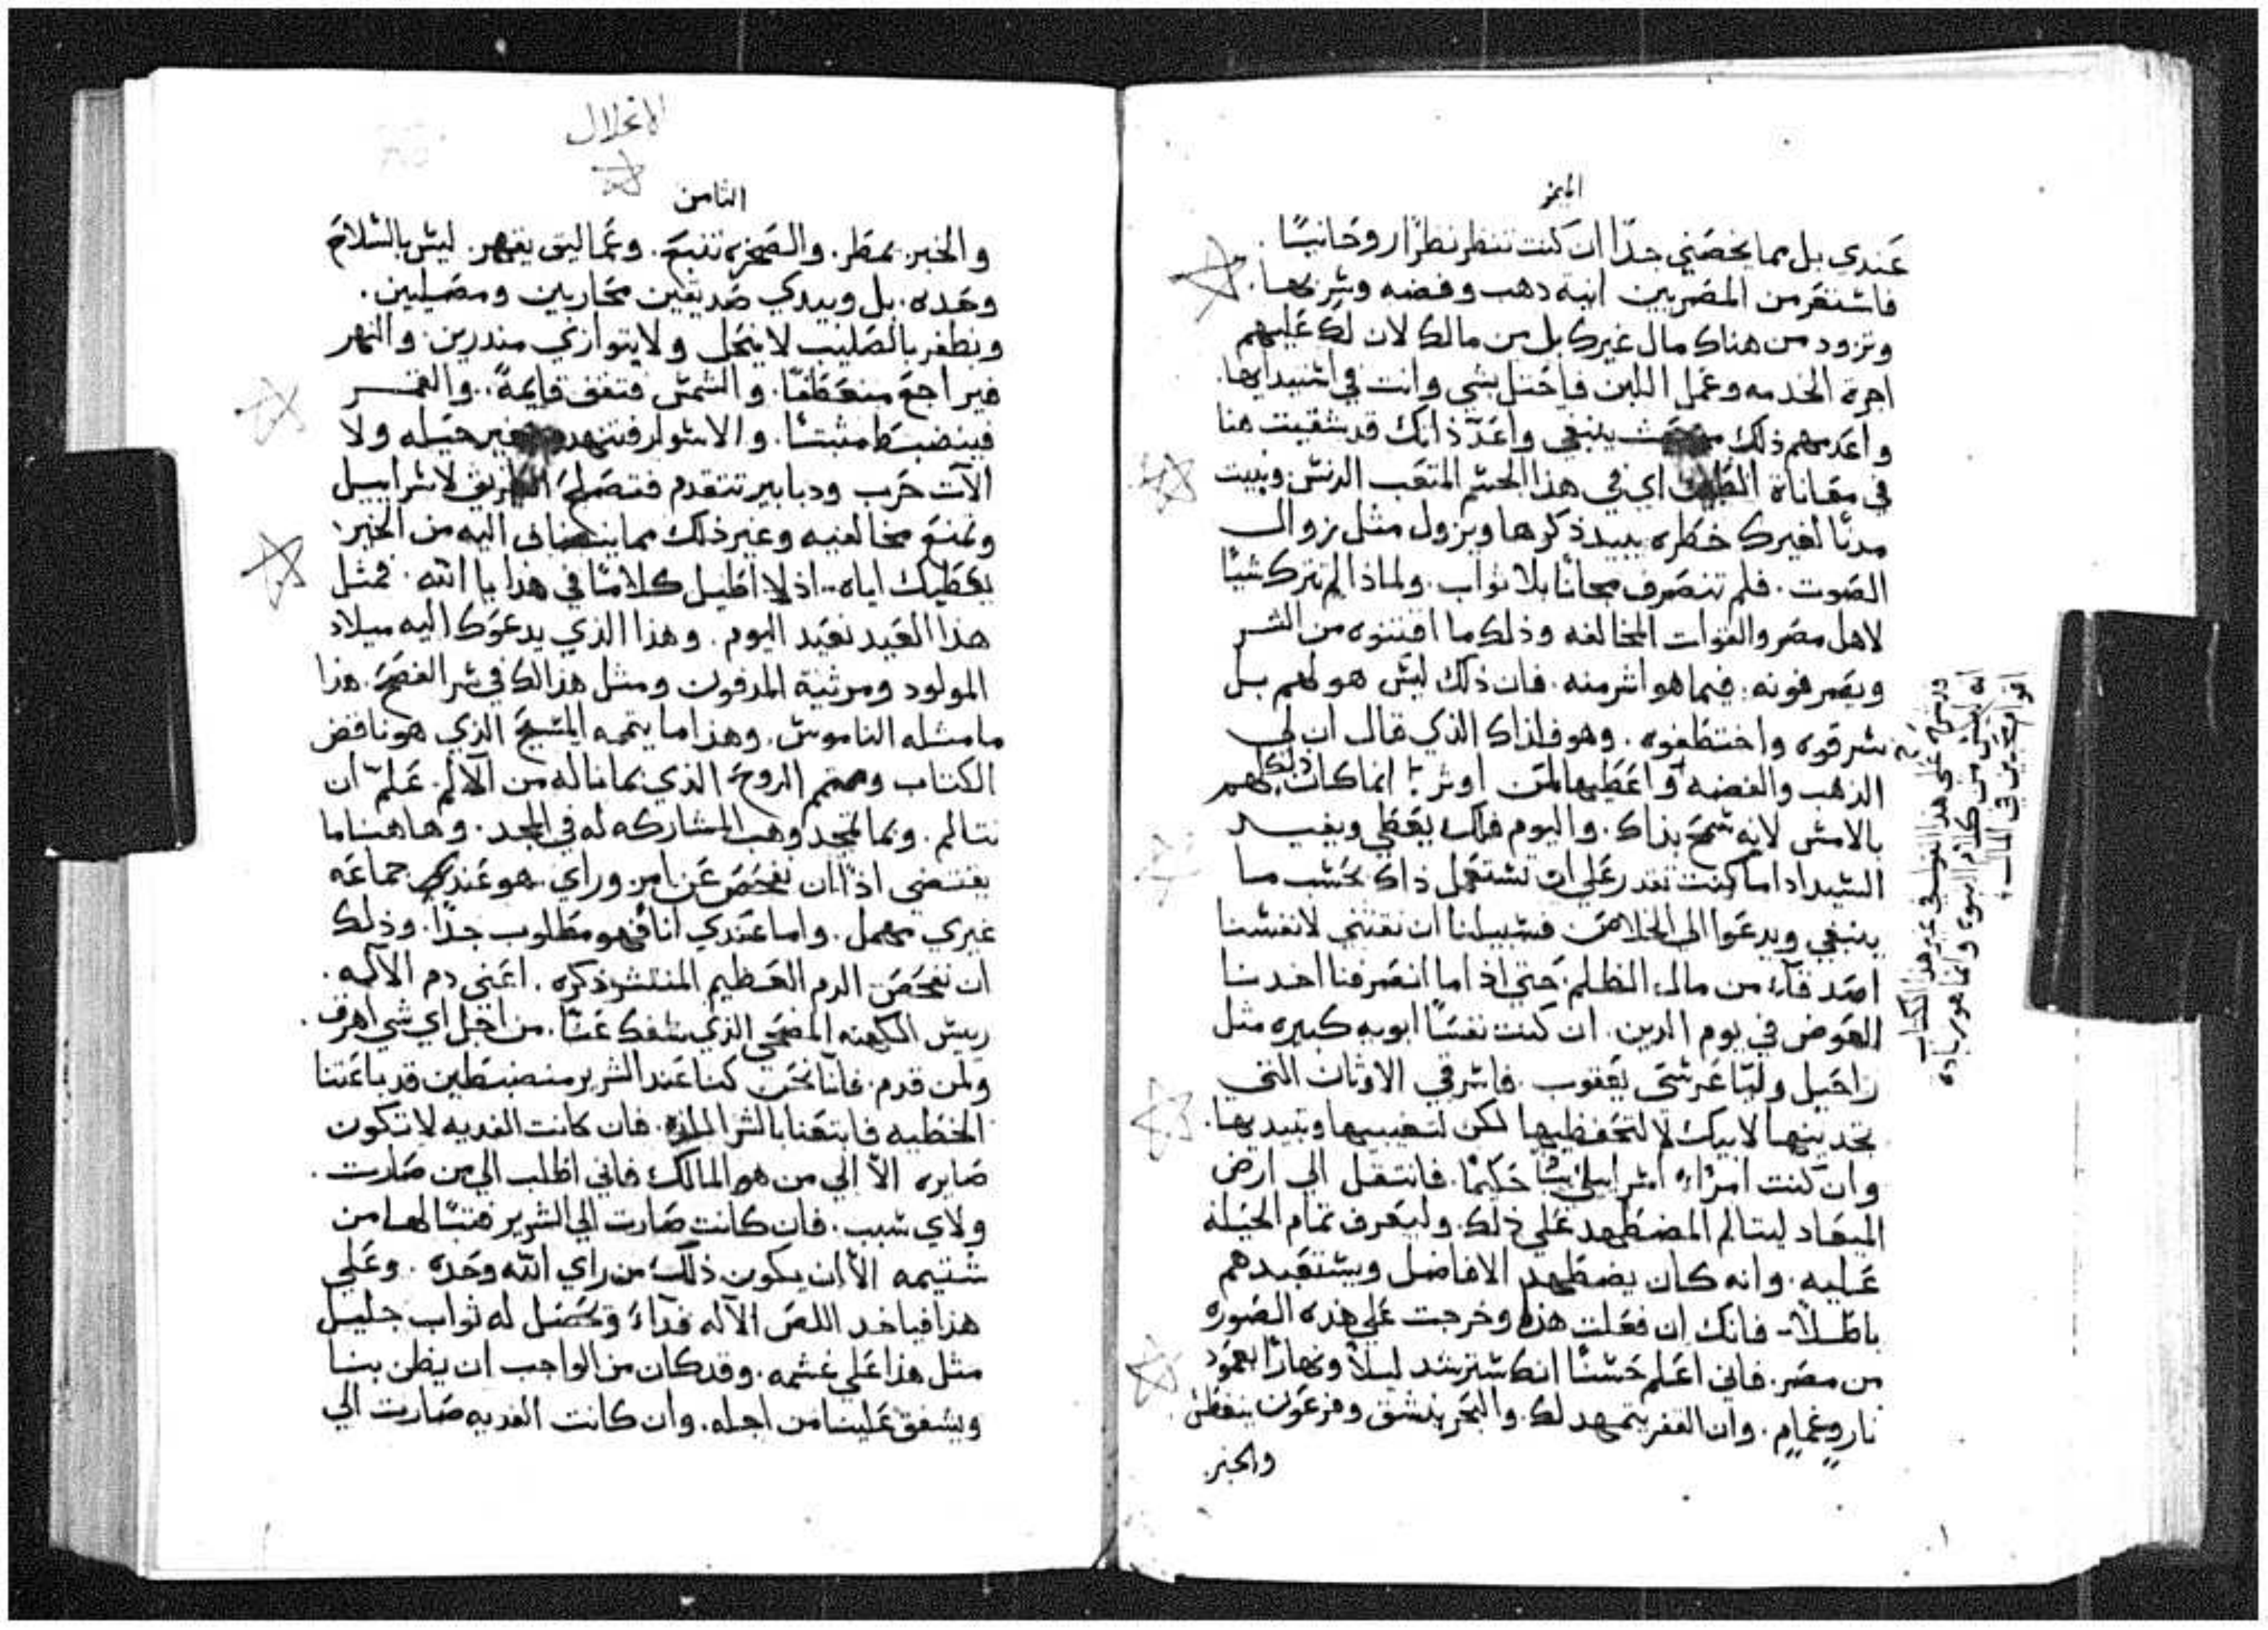 الميمر
عندي بل مما يخصني جدًا ان كنت تنظر نظرًا روحانيًا
فاستقر من المصريين انية دهب وفضه وسر بها.
وتزود من هناك مال غيرك بل من مالك لان لك عليهم
اجرة الخدمه وعمل اللبن فاحتل بشي وانت في استيدايها.
واعدمهم ذلك ينبغي واعدّ ذا انك قد شقيت هنا
في معاناة اي في هذا الجسم المتعب الدنس وبنيت
مدنًا لغيرك خطره يبيد ذكرها ويزول مثل زوال
الصوت. فلم تنصرف مجانًا بلا ثواب. ولماذا لم تترك شيًا
لاهل مصر والقوات المخالفه وذلك ما اقتنوه من الشر
ويصرفونه فيما هو اشر منه. فان ذلك ليس هو لهم بل
سرقوه واختطفوه. وهو فلذاك الذي قال ان لي
الذهب والفضه واعطيها لمن اوثر انما كان ذلك لهم
بالامس لانه سمح بذاك. واليوم فلك يعطي ويفيد
السيد اذا ما كنت تقدر علي ان تستعمل ذاك بحسب ما
ينبغي ويدعوا الي الخلاص فسبيلنا ان نقتني لانفسنا
اصدقآء من مال الظلم حتي اذا ما انصرفنا اخدنا
العوض في يوم الدين. ان كنت نفسًا ابويه كبيره مثل
راحيل وليّا عرسَي يعقوب. فاسرقي الاوثان التي
تجدينها لابيك لا لتحفظيها لكن لتغيبيها وتبيديها.
وان كنت امرءًا اسراييليًا حكيمًا. فانتقل الي ارض
الميعاد ليتالم المضطهد علي ذلك. وليعرف تمام الحيله
عليه. وانه كان يضطهد الافاضل ويستعبدهم
باطلاً. فانك ان فعلت هذا وخرجت علي هذه الصوره
من مصر. فاني اعلم حسنًا انك سترشد ليلاً ونهارًا بعمود
نار وغمام. وان القفر يتمهد لك. والبحر ينشق وفرعون ينغطس
والخبز
الاغلال
الثامن
والخبز يمطر. والصخره تنبع. وعماليق يقهر. ليس بالسلاح
وحده. بل وبيدي صديقين محاربين ومصليين.
وتظفر بالصليب لا ينحل ولا يتوازي مندرين. والنهر
فيراجع منعطفًا. والشمس فتقف قايمةً. والقمر
فينضبط مثبتًا. والاسوار فتنهدم بغير حيله ولا
الآت حرب ودبابير تتقدم فتصلح الطريق لاسراييل
وتمنع مخالفيه وغير ذلك مما ينضاف اليه من الخبز
يعطيك اياه. اذ لا اطيل كلامًا في هذا يا الله. فمثل
هذا العيد نعيد اليوم. وهذا الذي يدعوك اليه ميلاد
المولود ومرثية المدفون ومثل هذا لك في سر الفصح. هذا
ما مثله الناموس. وهذا ما يتمه المسيح الذي هو ناقض
الكتاب ومتمم الروح الذي بما ناله من الآلام. علّم ان
نتالم. وبما تمجد وهب المشاركه له في المجد. وهاهنا ما
يقتضي اذًا ان نفحص عن امر وراي هو عند جماعه
غيري مهمل. واما عندي انا فهو مطلوب جدًا. وذلك
ان نفحص الدم العظيم المنتشر ذكره. اعني دم الآله.
رييس الكهنه المضحي الذي سفك عنّا. من اجل اي شي اهرق.
ولمن قدم. فانّا نحن كنا عند الشرير منضبطين قد باعتنا
الخطيه فابتعنا بالشر الملذه. فان كانت الفديه لا تكون
صايره الاّ الي من هو المالك فاني اطلب الي من صارت.
ولاي سبب. فان كانت صارت الي الشرير فتبًا لها من
شتيمه الاّ ان يكون ذلك من راي الله وحده. وعلي
هذا فياخد اللص الآله فداء ويحصل له ثواب جليل
مثل هذا علي غشمه. وقد كان من الواجب ان يظن بنا
ويشفق علينا من اجله. وان كانت الفديه صارت الي